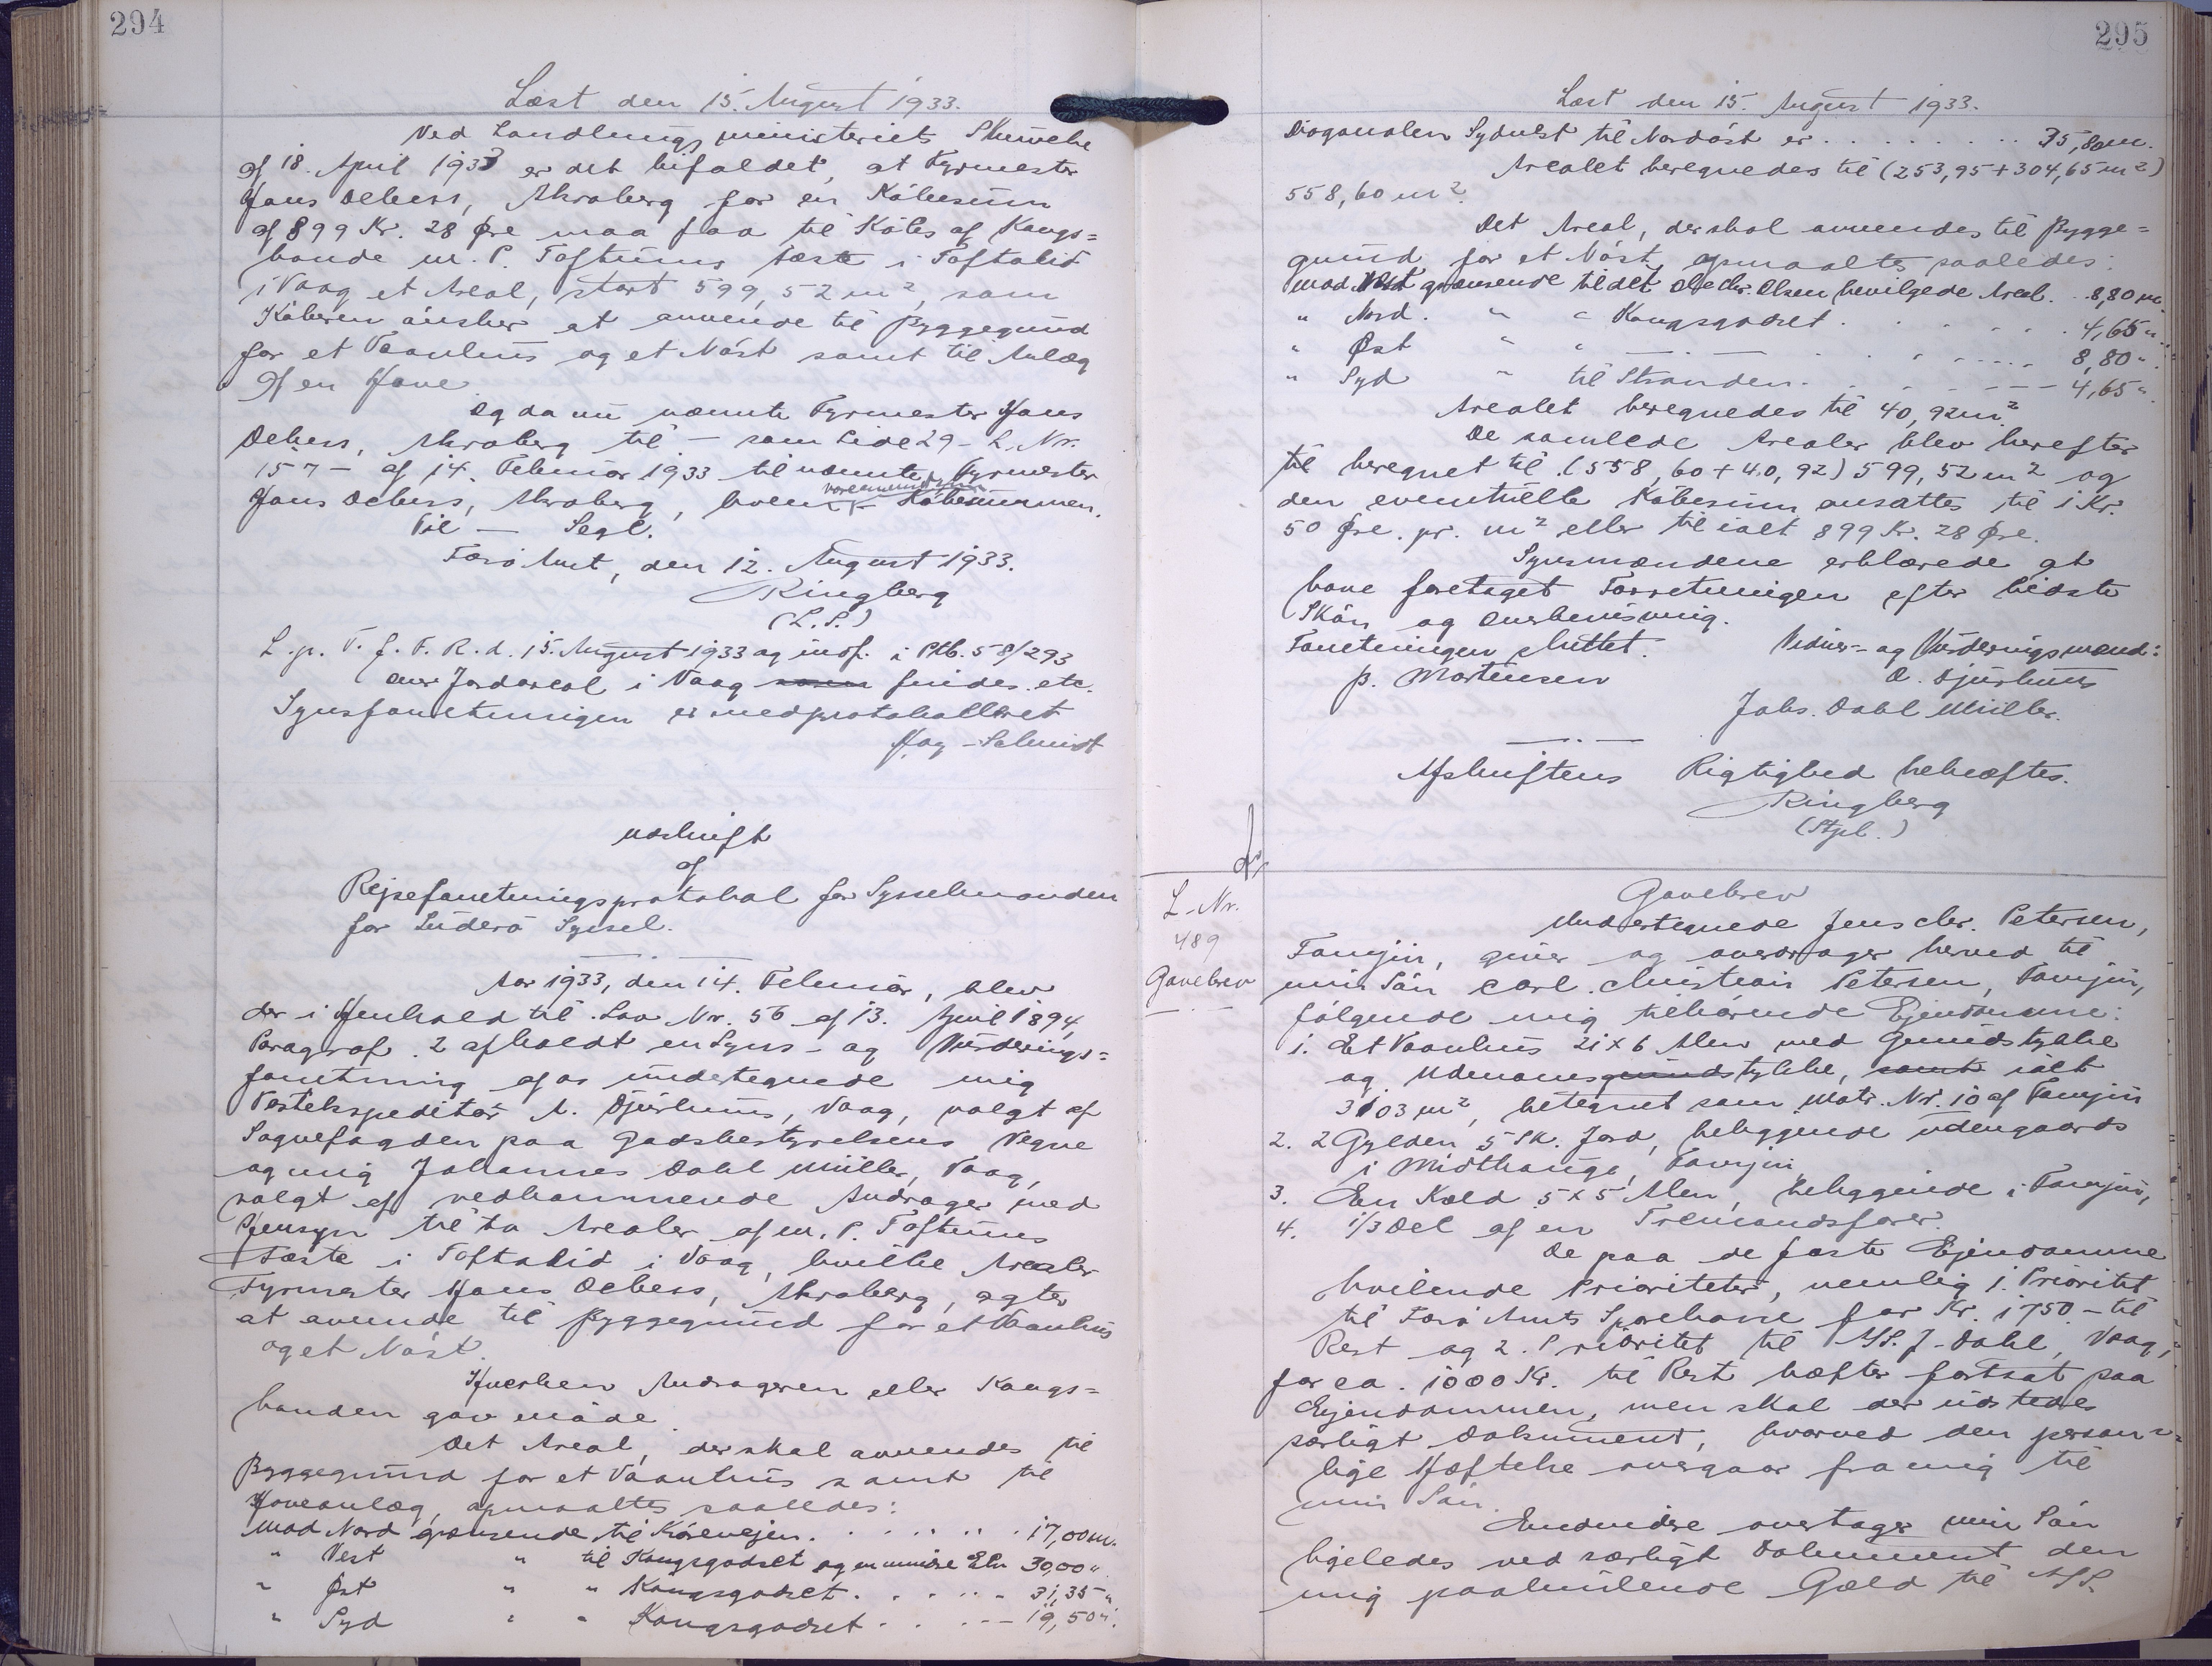 294
Læst den 15. August 1933.
Ved Landbrugsministeriets Skrivelse
af 18. April 1933 er det bifaldet, at Fyrmester
Hans Debess, Akraberg for en Købesum
af 899 Kr. 28 Øre maa faa til Købs af Kongs=
bonde M. P. Toftums Fæste i Toftalid
i Vaag et Areal, stort 599,52 m², som
Køberen ønsker at anvende til Byggegrund
for et Vaanhus og et Nøst samt til Anlæg
af en Have
Og da nu nævnte Fyrmester Hans
Debess, Akraberg til — som Side 29 - L. Nr.
157 — af 14. Februar 1933 til nævnte Fyrmester
Hans Debess, Akraberg, Købesummen.
Til — Segl.
Færø Amt, den 12. August 1933.
Ringberg
(L.S.)
L. p. T. f. F. R. d. 15. August 1933 og indf. i Ptb. 58/293
over Jordareal i Vaag findes. etc.
Synsforretningen er medprotokolleret
Høg-Schmidt
Udskrift
af
Rejseforretningsprotokol for Sysselmanden
for Suderø Syssel.
Aar 1933, den 14. Februar, blev
der i Henhold til Lov Nr. 56 af 13. April 1894,
Paragraf 2 afholdt en Syns- og Vurderings=
forretning af os undertegnede mig
Postekspeditør A. Djurhuus, Vaag, valgt af
Sognefogden paa Godsbestyrelsens Vegne
og mig Johannes Dahl Müller, Vaag,
valgt af vedkommende Andrager med
Hensyn til to Arealer af M. P. Toftums
Fæste i Toftalid i Vaag, hvilke Arealer
Fyrmester Hans Debess, Akraberg, agter
at anvende til Byggegrund for et Vaanhus
og et Nøst.
Hverken Andrageren eller Kongs=
bonden gav møde
Det Areal, der skal anvendes til
Byggegrund for et Vaanhus samt til
Haveanlæg, opmaaltes saaledes:
mod Nord grænsende til Kørevejen. . . . . . . 17,00 m.
" Vest " til Kongsgodset og en mindre Elv 30,00 "
" Øst " " Kongsgodset. . . . . . 31,35 "
" Syd " " Kongsgodset . . . - - 19,50 "
295
Læst den 15. August 1933.
Diagonalen Sydvest til Nordøst er . . . . . . . . 35,80 m.
Arealet beregnedes til (253,95 + 304,65 m²)
558,60 m².
Det Areal, der skal anvendes til Bygge=
grund for et Nøst, opmaaltes saaledes:
mod Vest grænsende til det Ole Chr. Olsen bevilgede Areal. . 8,80 m
" Nord. " " Kongsgodset . . . . . . . . 4,65 "
" Øst " " — . — . . . . . . . 8,80 "
" Syd " til Stranden. . . . . - - - 4,65 "
Arealet beregnedes til 40,92 m²
De samlede Arealer blev herefter
til beregnet til (558,60 + 40,92) 599,52 m² og
den eventuelle Købesum ansattes til 1 Kr.
50 Øre. pr. m² eller til ialt 899 Kr. 28 Øre.
Synsmændene erklærede at
have foretaget Forretningen efter bedste
Skøn og Overbevisning.
Forretningen sluttet. Vidner- og Vurderingsmænd:
P. Mortensen A. Djurhuus
Johs. Dahl Müller.
Afskriftens Rigtighed bekræftes.
Ringberg
(Stpl.)
L. Nr.
489
Gavebrev
Gavebrev
Undertegnede Jens Chr. Petersen,
Famjin, giver og overdrager herved til
min Søn Carl Christian Petersen, Famjin,
følgende mig tilhørende Ejendomme:
1. Et Vaanhus 21 x 6 Alen med Grundstykke
og Udenomsgrundstykke, samt ialt
3103 m², betegnet som Matr. Nr. 10 af Famjin
2. 2 Gylden 5 Sk. Jord, beliggende udengaards
i Midthauge, Famjin
3. En Kæld 5 x 5 Alen, beliggende i Famjin,
4. 1/3 Del af en Tremandsfarer.
De paa de faste Ejendomme
hvilende Prioriteter, nemlig 1. Prioritet
til Færø Amts Sparekasse for Kr. 1750 - til
Rest og 2. Prioritet til A/S. J. Dahl, Vaag,
for ca. 1000 Kr. til Rest hæfter fortsat paa
Ejendommen, men skal der udstedes
særligt Dokument, hvorved den person=
lige Hæftelse overgaar fra mig til
min Søn.
Endvidere overtager min Søn
ligeledes ved særligt Dokument den
mig paahvilende Gæld til A/S.